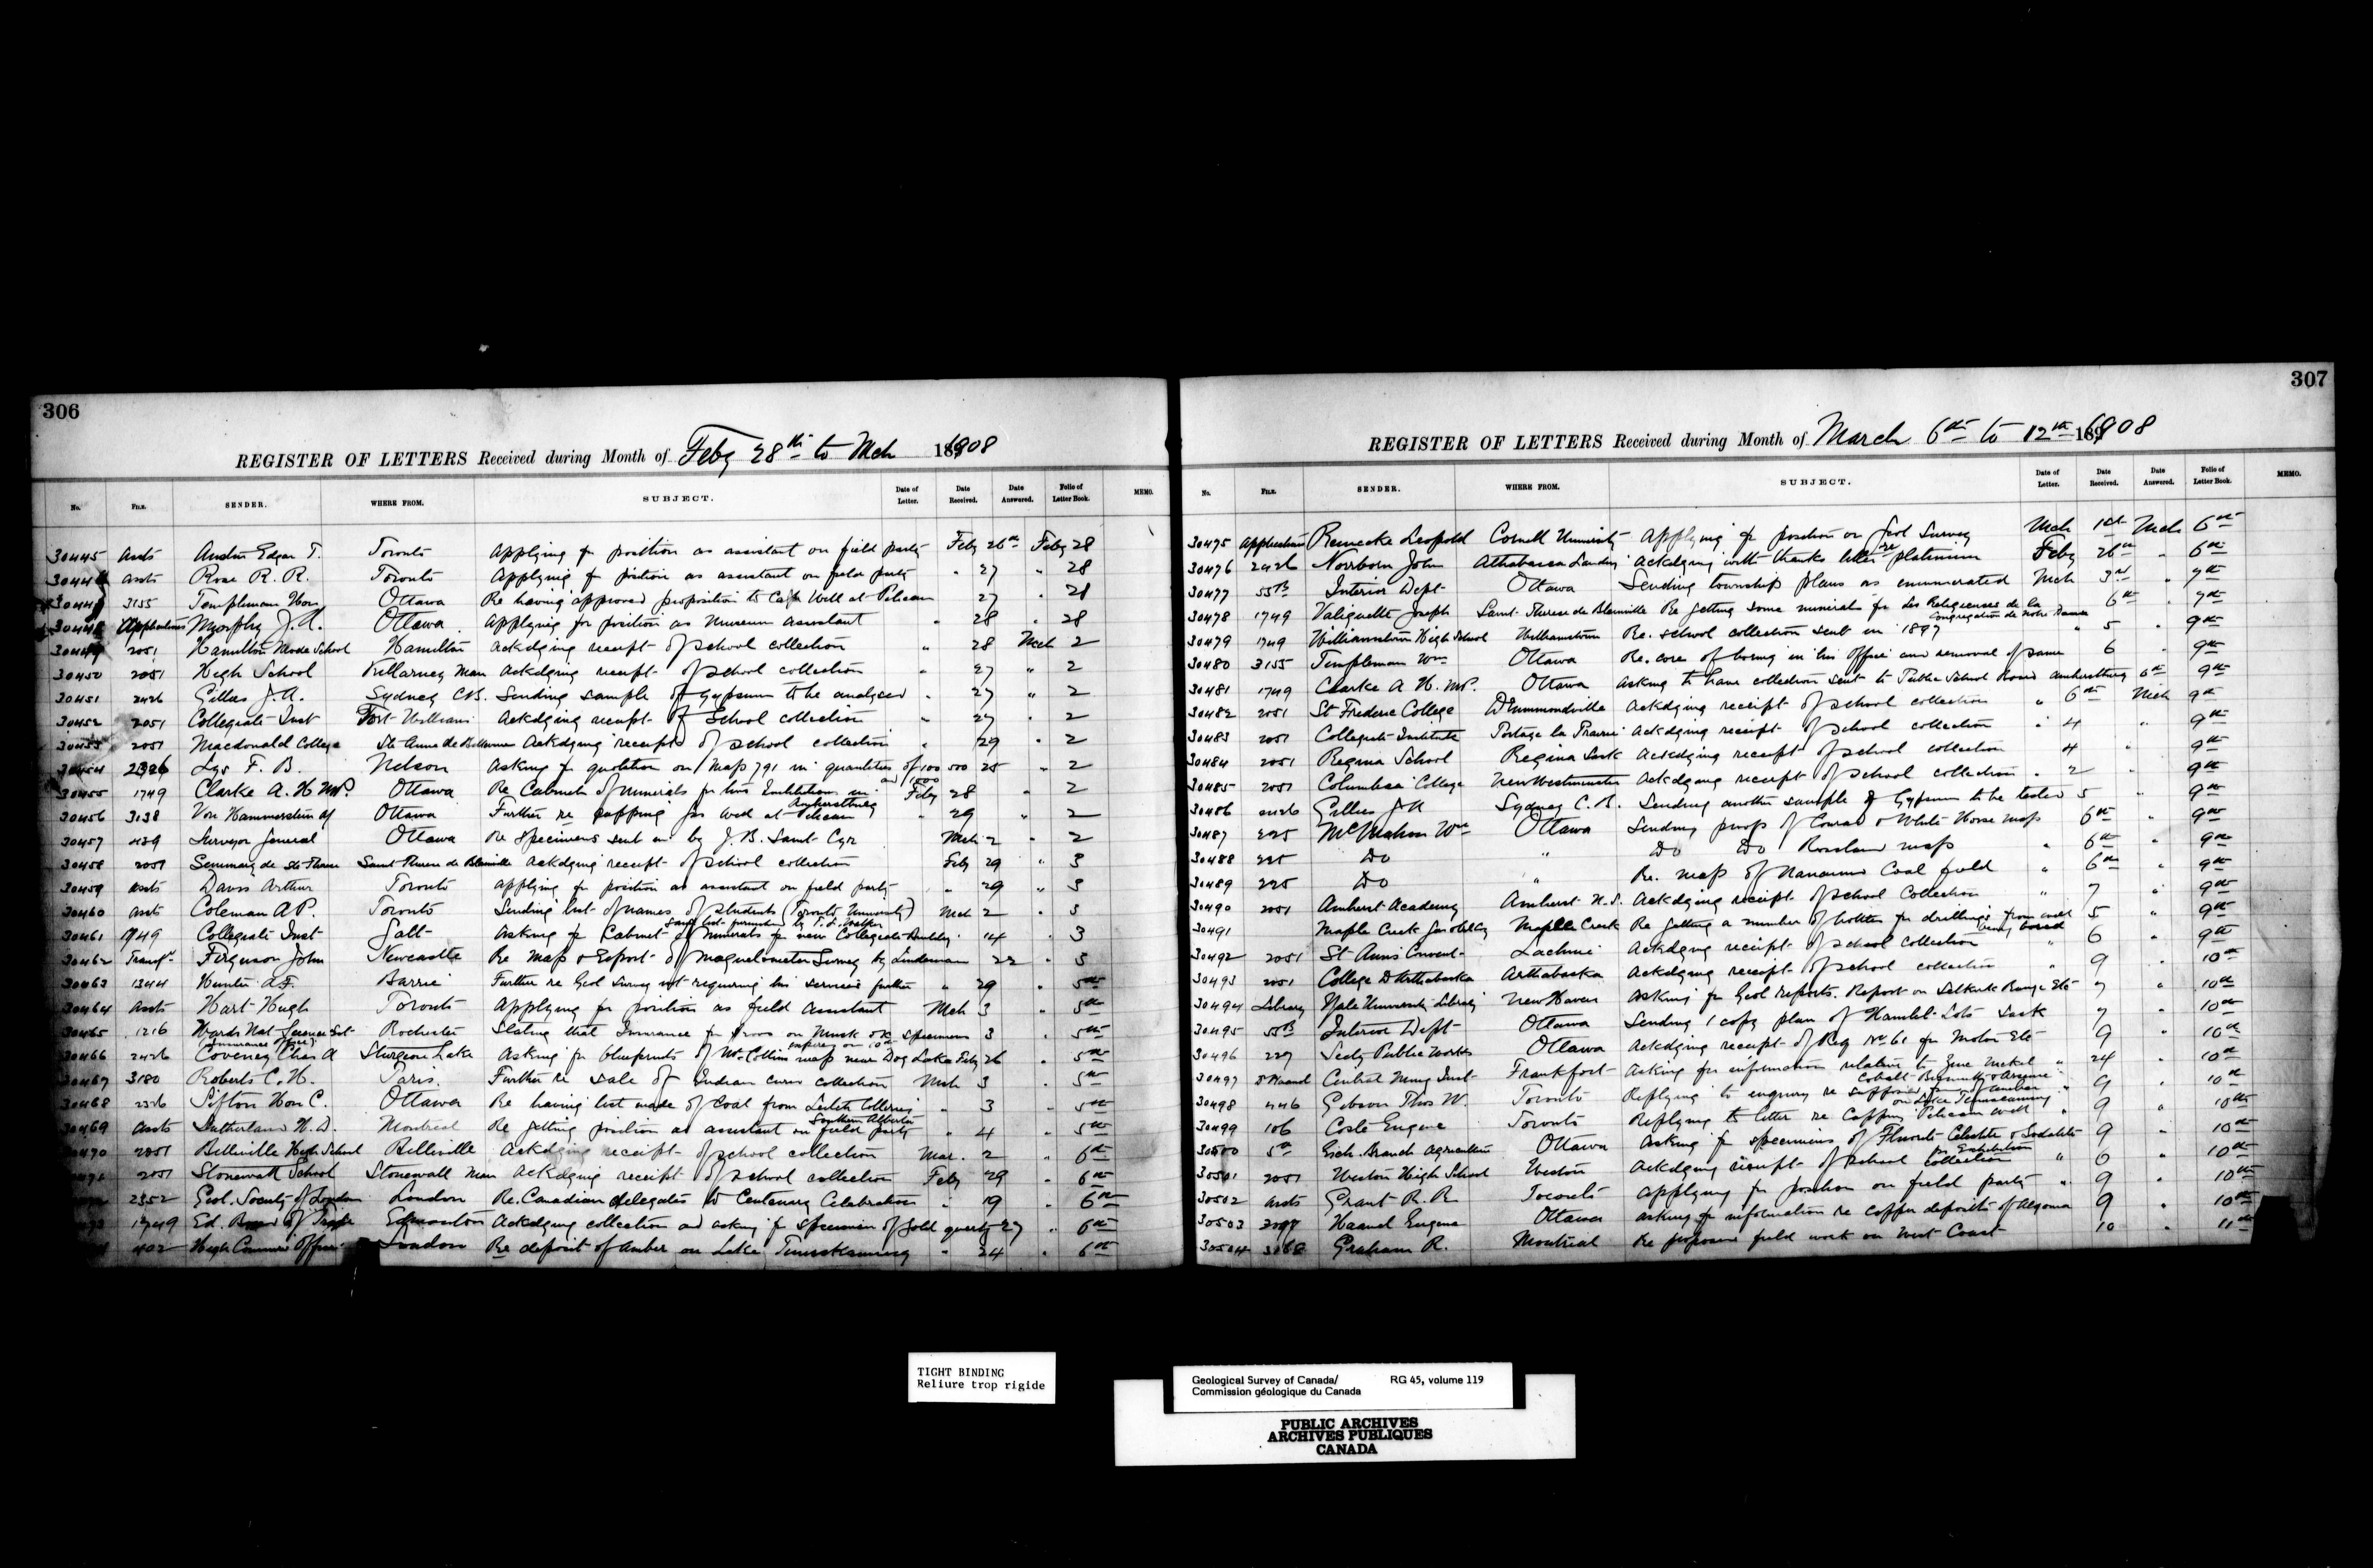 306
REGISTER OF LETTERS Received during Month of Feby 28th to Mch 1908
No. FILE. SENDER. WHERE FROM. SUBJECT. Date of Letter. Date Received. Date Answered. Folio of Letter Book. MEMO.
30445 Assts Austin Edgar T. Toronto Applying for position as assistant on field party Feby 26th Feby 28
30446 Assts Rose R. R. Toronto Applying for position as assistant on field party " 27 " 28
30447 3155 Templeman Hon Ottawa Re having approved proposition to Cap Well at Pelican 27 " 28
30448 Applications Murphy J. A. Ottawa Applying for position as Museum Assistant " 28 " 28
30449 2051 Hamilton Model School Hamilton Ackdging receipt of school collection " 28 Mch 2
30450 2051 High School Killarney Man Ackdging receipt of school collection " 27 " 2
30451 2426 Gillies J. A. Sydney C.B. Sending sample of gypsum to be analysed " 27 " 2
30452 2051 Collegiate Inst Fort William Ackdging receipt of School collection " 27 " 2
30453 2051 Macdonald College Ste Anne de Bellevue Ackdging receipt of school collection " 29 " 2
30454 2326 Lys F. B. Nelson Asking for quotation on Map 791 in quantities of 100 500 and 1000 25 " 2
30455 1749 Clarke A. H. MP. Ottawa Re Cabinet of minerals for his Institution in Amherstburg Feby 28 " 2
30456 3138 Von Hammerstein Af Ottawa Further re capping gas well at Pelican " 29 " 2
30457 439 Surveyor General Ottawa Re specimens sent in by J. B. Saint Cyr Mch 2 " 2
30458 2051 Seminary de Ste Therese Saint Therese de Blainville Ackdging receipt of school collection Feby 29 " 3
30459 Assts Davis Arthur Toronto Applying for position as assistant on field party " 29 " 3
30460 Assts Coleman A P. Toronto Sending list of names of students (Toronto University) Mch 2 " 3
Same list furnished by T. L. Walker
30461 1749 Collegiate Inst Galt Asking for Cabinet of minerals for new Collegiate Building " 14 " 3
30462 Ferguson John Newcastle Re Map & Report of Magnetometer Survey by Lindeman 22 " 3
30463 1344 Hunter A.F. Barrie Further re Geol Survey not requiring his services further " 29 " 5th
30464 Assts Hart Hugh Toronto Applying for position as field assistant Mch 3 " 5th
30465 1216 Wards Nat Science Est Rochester Stating that Insurance for proos on Musk ox specimens 3 " 5th
(Insurance Office) expires on 10th
30466 2426 Coveney Chas A Sturgeon Lake Asking for blueprints of Mr Collins map near Dog Lake Feby 26 " 5th
30467 3180 Roberts C. H. Paris. Further re sale of Indian curio collection Mch 3 " 5th
30468 2326 Sifton Hon C. Ottawa Re having test made of Coal from Leitch Collieries Southern Alberta " 3 " 5th
30469 Assts Sutherland H. D. Montreal Re getting position as assistant on field party " 4 " 5th
30470 2051 Belleville High School Belleville Ackdging receipt of school collection Mar. 2 " 6th
2051 Stonewall School Stonewall Man Ackdging receipt of school collection Feby 29 " 6th
2352 Geol. Society of London London Re. Canadian delegates to Centenary Celebration " 19 " 6th
1749 Ed. Board of Trade Edmonton Ackdging collection and asking for specimen of gold quartz 27 " 6th
402 High Commrs Office London Re deposit of Amber on Lake Timiskaming " 24 " 6th
307
REGISTER OF LETTERS Received during Month of March 6th to 12th 1908
No. FILE. SENDER. WHERE FROM. SUBJECT. Date of Letter. Date Received. Date Answered. Folio of Letter Book. MEMO.
30475 Application Reinecke Leopold Cornell University Applying for position on Geol Survey Mch 1st Mch 6th
30476 2426 Norrborn John Athabasca Landing Ackdging with thanks letter re platinum Feby 26th " 6th
30477 55B Interior Dept Ottawa Sending township plans as enumerated Mch 3rd " 7th
30478 1749 Valiquette Joseph Saint Therese de Blainville Re getting some minerals for Les Religieuses de la Congregation de Notre Dame 6th " 7th
30479 1749 Williamstown High School Williamstown Re. school collection sent in 1897 " 5 " 9th
30480 3155 Templeman Wm Ottawa Re. core of boring in his office and removal of same 6 " 9th
30481 1749 Clarke A H. MP. Ottawa Asking to have collection sent to Public School Board Amherstburg 6th 9th
30482 2051 St Frederic College Drummondville Ackdging receipt of school collection " 6th Mch 9th
30483 2051 Collegiate Institute Portage la Prairie Ackdging receipt of school collection " 4 " 9th
30484 2051 Regina School Regina Sask Ackdging receipt of school collection 4 " 9th
30485 2051 Columbia College New Westminster Ackdging receipt of school collection " 2 " 9th
30486 2426 Gillies J A Sydney C. B. Sending another sample of Gypsum to be tested 5 " 9th
30487 225 McMahon Wm Ottawa Sending proof of Conrad & White Horse map 6th " 9th
30488 225 Do " Do Do Rossland map " 6th " 9th
30489 225 Do " Re. map of Nanaimo Coal field " 6th " 9th
30490 2051 Amherst Academy Amherst N.S. Ackdging receipt of school Collection " 7 " 9th
30491 Maple Creek Gas Oil & Cy Maple Creek Re getting a number of bottles for drillings from well being bored 5 " 9th
30492 2051 St Ann's Convent Lachine Ackdging receipt of school collection " 6 " 9th
30493 2051 College D'Arthabaska Arthabaska Ackdging receipt of school collection " 9 10th
30494 Library Yale University Library New Haven Asking for Geol Reports. Report on Selkirk Range Etc 7 " 10th
30495 55B Interior Dept Ottawa Sending 1 copy plan of Hamlet Lots Sask 7 " 10th
30496 227 Secty Public Works Ottawa Ackdging receipt of Req No 61 for Motor Etc 9 " 10th
30497 Central Mining Inst Frankfort Asking for information relative to Zinc Nickel Cobalt Bismuth & Arsenic " 24 " 10th
30498 446 Gibson Thos W. Toronto Replying to enquiry re supposed find of amber on Lake Temiscaming " 9 " 10th
30499 106 Coste Eugene Toronto Replying to letter re Capping Pelican well " 9 " 10th
30500 5a Exh. Branch Agriculture Ottawa Asking for specimens of Fluorite Celestite & Sodalite for Exhibition 9 " 10th
30501 2051 Weston High School Weston Ackdging receipt of school collection " 6 " 10th
30502 Assts Grant R. R. Toronto Applying for position on field party " 9 " 10th
30503 Haanel Eugene Ottawa Asking for information re copper deposits of Algoma 9 " 10th
30504 3168 Graham R. Montreal Re proposed field work on West Coast 10 " 11th
TIGHT BINDING
Reliure trop rigide
Geological Survey of Canada/ RG 45, volume 119
Commission géologique du Canada
PUBLIC ARCHIVES
ARCHIVES PUBLIQUES
CANADA